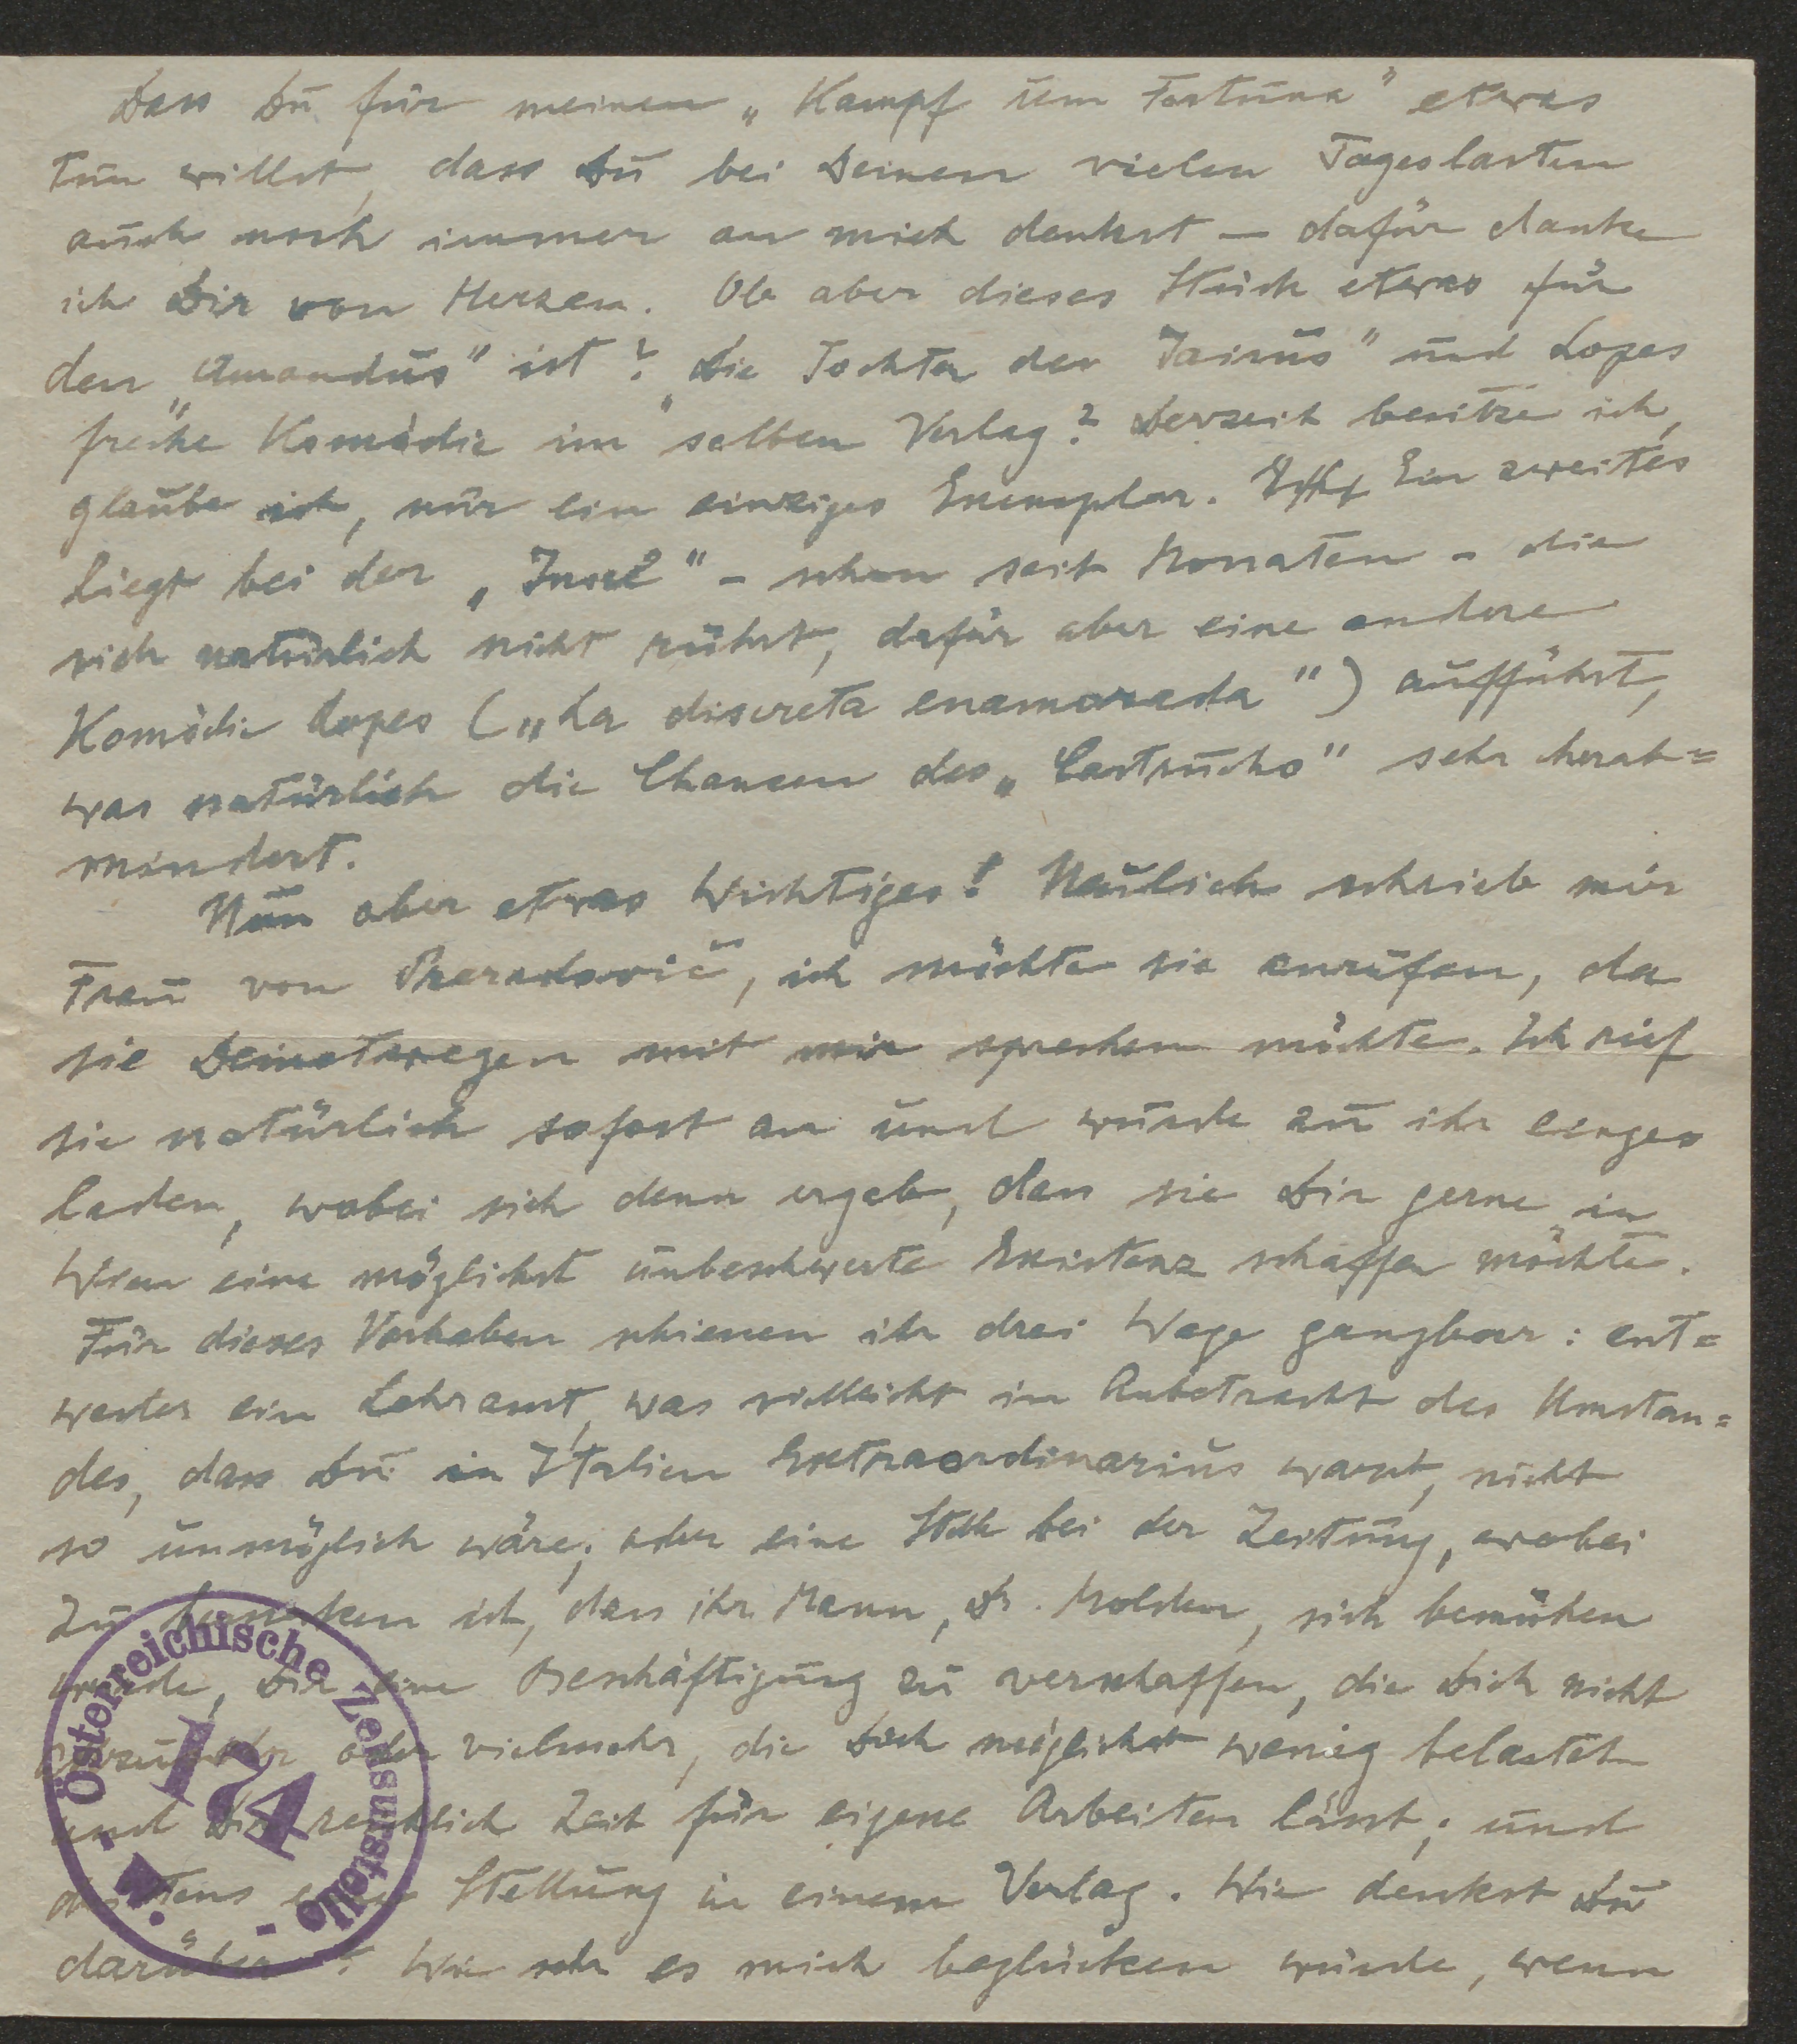 Dass Du für meinen „Kampf um Fortuna" etwas
tun willst, dass Du bei Deinen vielen Tageslasten
auch noch immer an mich denkst – dafür danke
ich Dir von Herzen. Ob aber dieses Stück etwas für
den „Amandus" ist? „Die Tochter des Jairus" und Lopes
freche Komödie im selben Verlag? Derzeit besitze ich,
glaube ich, nur ein einziges Exemplar. Ein zweites
liegt bei der „Insel" – schon seit Monaten – die
sich natürlich nicht rührt, dafür aber eine andere
Komödie Lopes („La discreta enamorada") aufführt,
was natürlich die Chancen des „Castrucho" sehr herab=
mindert.
Nun aber etwas Wichtiges! Neulich schrieb mir
Frau von Preradović, ich möchte sie anrufen, da
sie Deinetwegen mit mir sprechen möchte. Ich rief
sie natürlich sofort an und wurde zu ihr einge=
laden, wobei sich denn ergab, dass sie Dir gerne in
Wien eine möglichst unbeschwerte Existenz schaffen möchte.
Für dieses Vorhaben schienen ihr drei Wege gangbar: ent=
weder ein Lehramt, was vielleicht in Anbetracht des Umstan=
des, dass Du in Italien Extraordinarius warst, nicht
so unmöglich wäre; oder eine Stelle bei der Zeitung, wobei
zu bemerken ist, dass ihr Mann, Dr. Molden, sich bemühen
würde, Dir eine Beschäftigung zu verschaffen, die Dich nicht
oder vielmehr, die Dich möglichst wenig belastet
und Dir reichlich Zeit für eigene Arbeiten lässt; und
drittens eine Stellung in einem Verlag. Wie denkst Du
darüber? Wie sehr es mich beglücken würde, wenn
Österreichische Zensurstelle
174